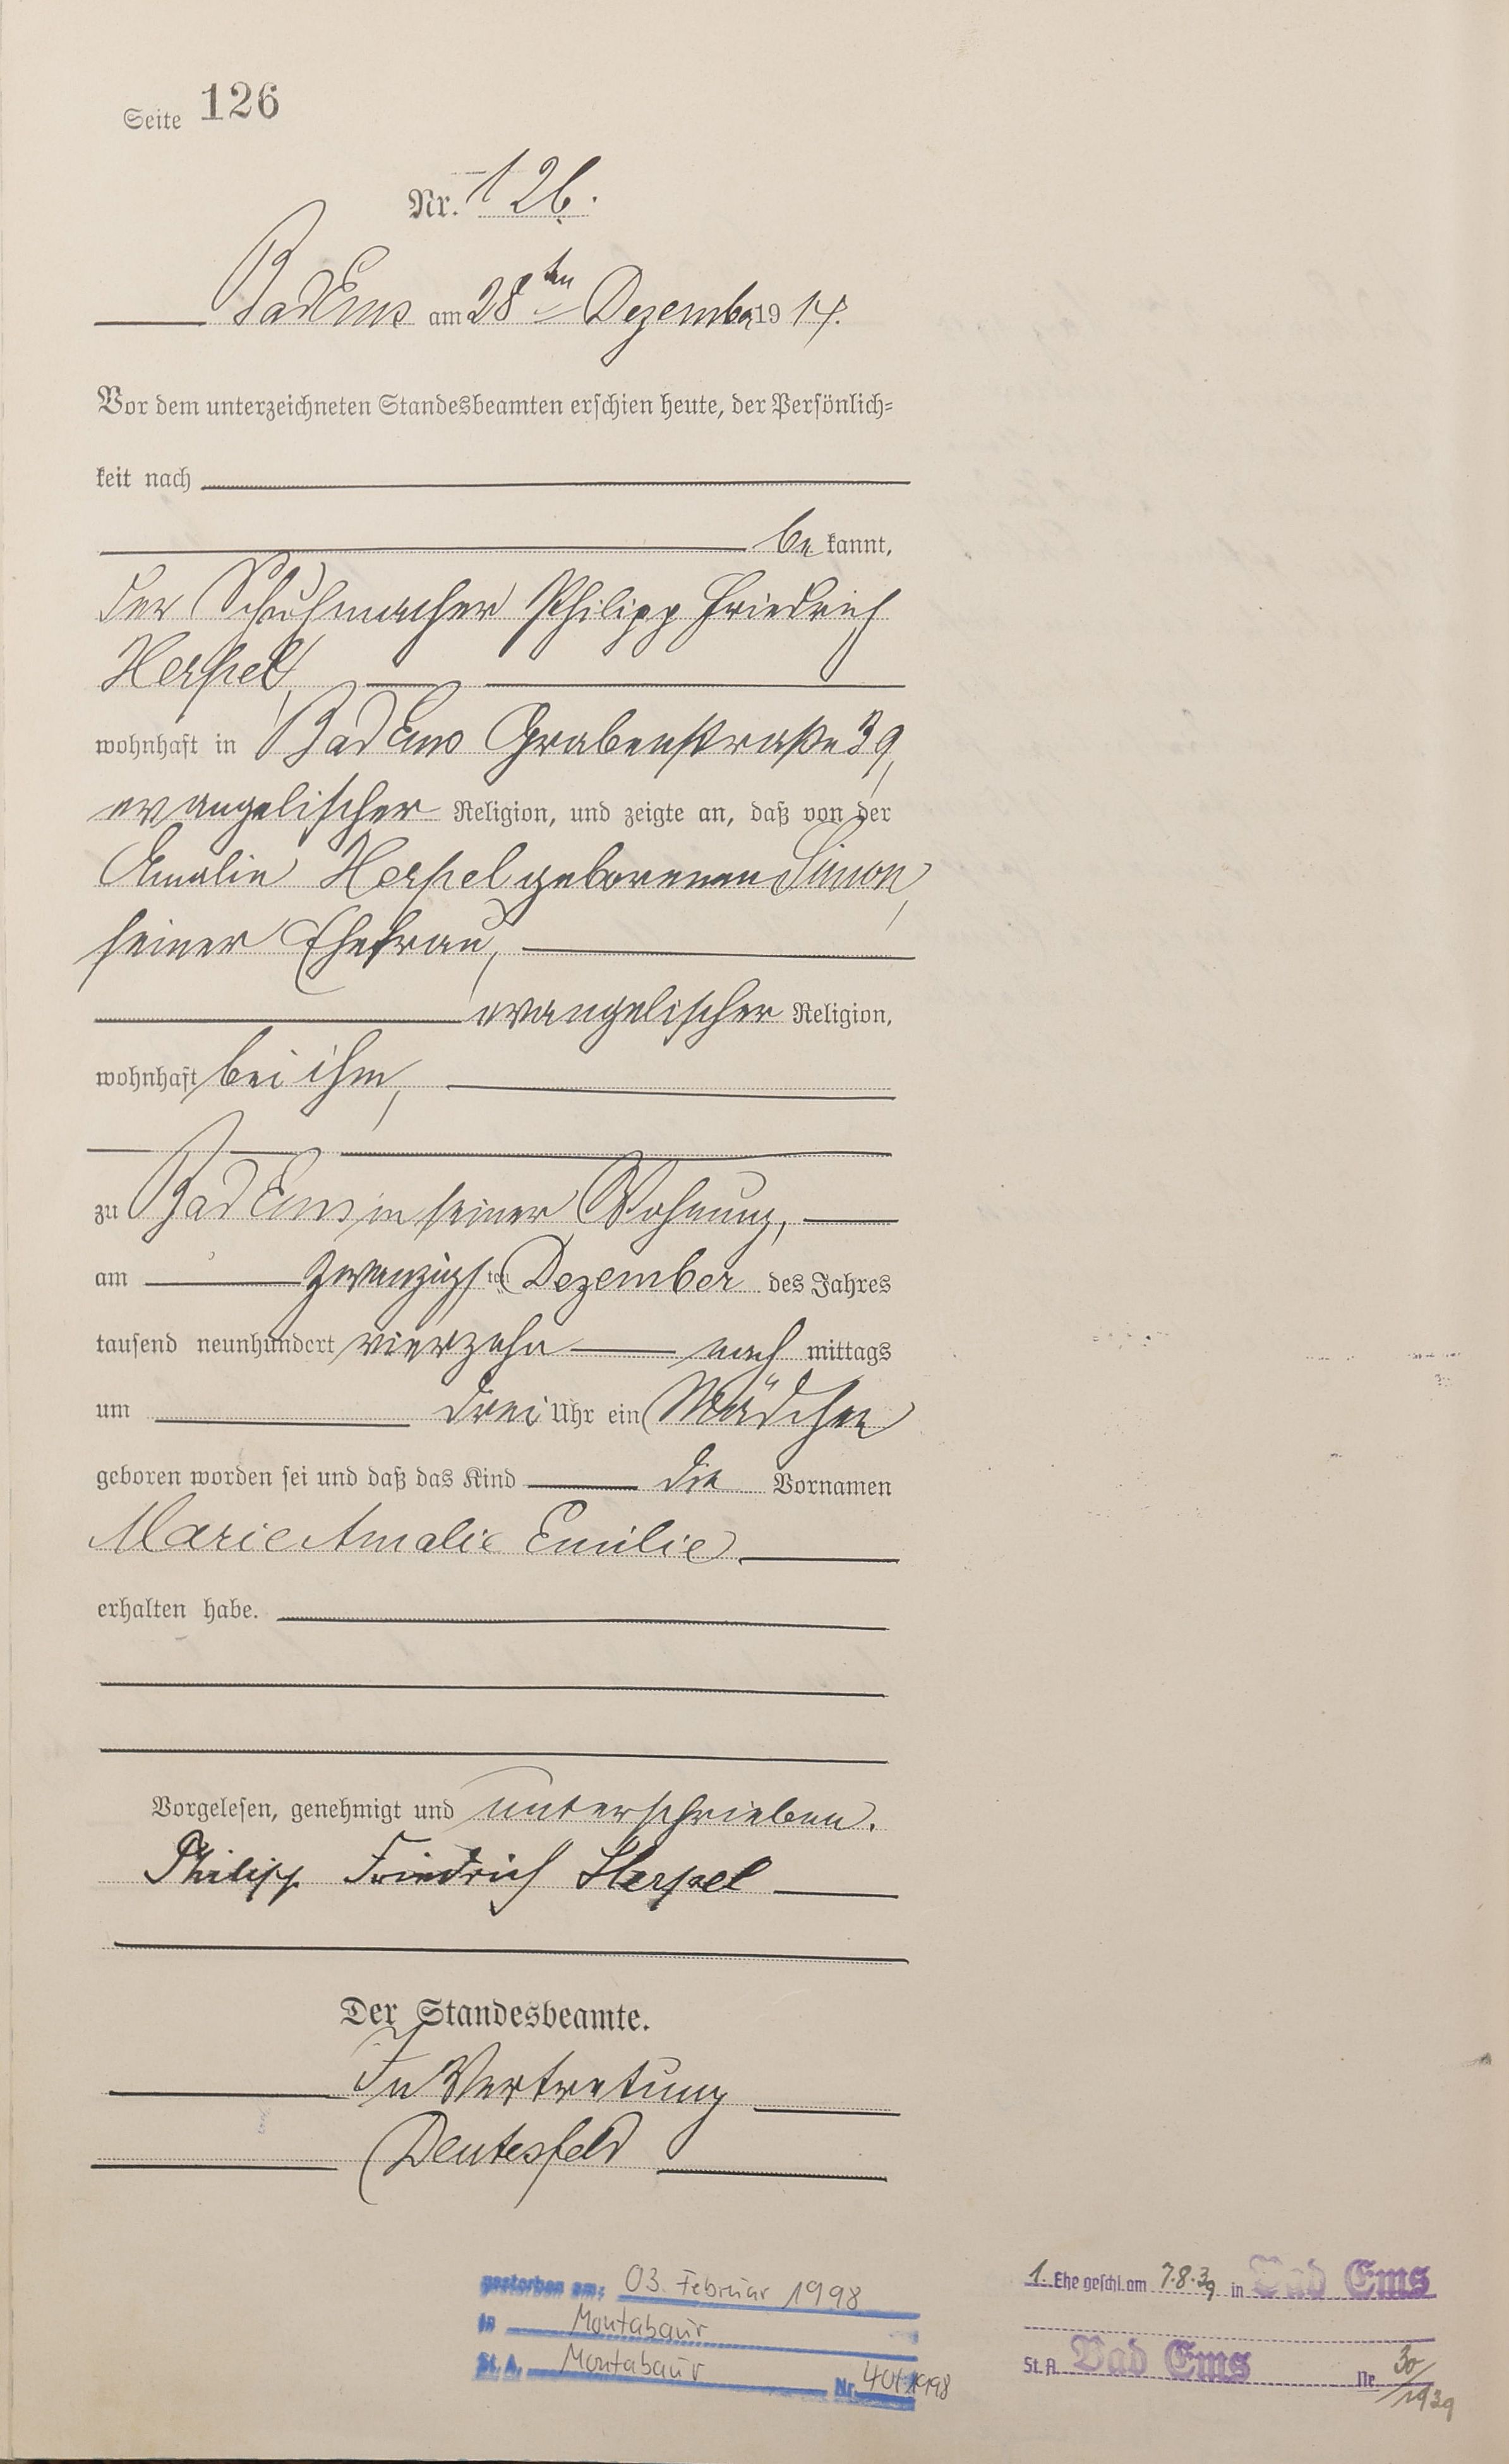 Seite 126
Nr. 126.
Bad Ems am 28ten Dezember 1914.
Vor dem unterzeichneten Standesbeamten erschien heute, der Persönlich=
keit nach
be kannt,
der Schuhmacher Philipp Friedrich
Herpel,
wohnhaft in Bad Ems Grabenstraße 39,
evangelischer Religion, und zeigte an, daß von der
Amalie Herpel geborenen Simon,
seiner Ehefrau,
evangelischer Religion,
wohnhaft bei ihm,
zu Bad Ems in seiner Wohnung,
am zwanzigsten Dezember des Jahres
tausend neunhundert vierzehn nach mittags
um drei Uhr ein Mädchen
geboren worden sei und daß das Kind die Vornamen
Marie Amalie Emilie
erhalten habe.
Vorgelesen, genehmigt und unterschrieben.
Philipp Friedrich Herpel
Der Standesbeamte.
In Vertretung
Deutesfeld
gestorben am: 03. Februar 1998
in Montabaur
St. A. Montabaur Nr. 401/1998
1. Ehe geschl. am 7.8.39 in Bad Ems
St. A. Bad Ems Nr. 30/1939